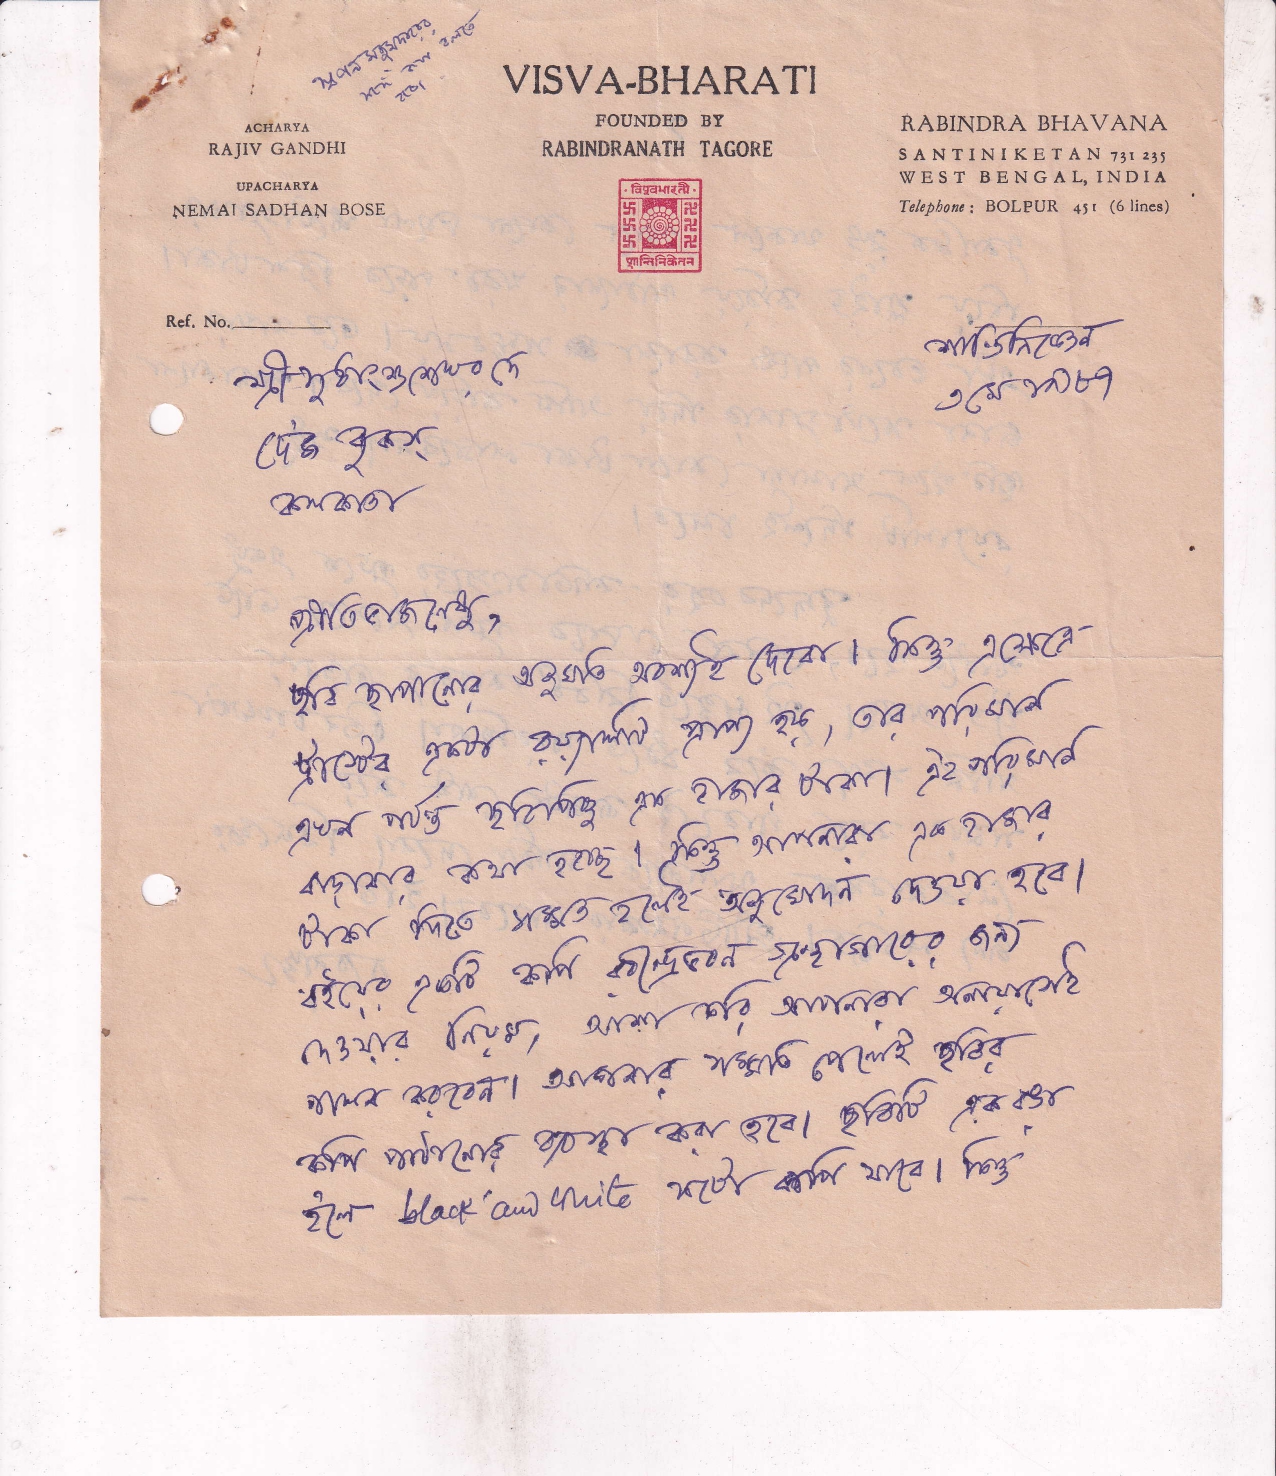 স্বপন মজুমদারের
সঙ্গে কথা বলতে
হবে।
VISVA-BHARATI
FOUNDED BY
RABINDRANATH TAGORE
ACHARYA
RAJIV GANDHI
UPACHARYA
NEMAI SADHAN BOSE
RABINDRA BHAVANA
SANTINIKETAN 731 235
WEST BENGAL, INDIA
Telephone: BOLPUR 451 (6 lines)
विश्वभारती
शान्तिनिकेतन
Ref. No.
শান্তিনিকেতন
৩ মে ১৯৮৭
শ্রীসুধাংশুশেখর দে
দে'জ বুকস্
কলকাতা
প্রীতিভাজনেষু,
ছবি ছাপানোর অনুমতি অবশ্যই দেবো। কিন্তু এক্ষেত্রে
ট্রাস্টের একটা রয়্যালটি প্রাপ্য হয়, তার পরিমাণ
এখন পর্যন্ত ছবিপিছু এক হাজার টাকা। এই পরিমাণ
বাড়াবার কথা হচ্ছে। কিন্তু আপনারা এক হাজার
টাকা দিতে সম্মত হলেই অনুমোদন দেওয়া হবে।
বইয়ের একটি কপি রবীন্দ্রভবন গ্রন্থাগারের জন্য
দেওয়ার নিয়ম, আশা করি আপনারা অনায়াসেই
পালন করবেন। আপনার সম্মতি পেলেই ছবির
কপি পাঠানোর ব্যবস্থা করা হবে। ছবিটি একরঙা
হলে black and white ফটো কপি যাবে। কিন্তু